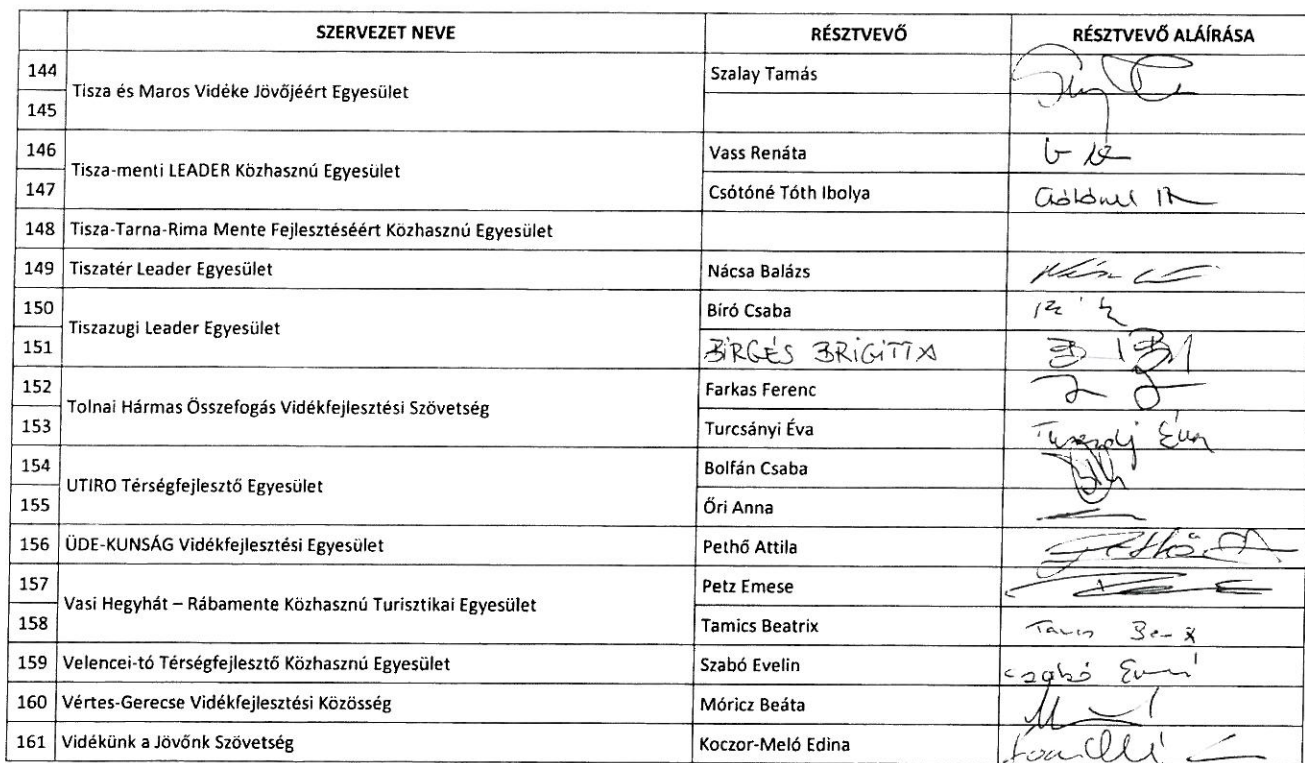 SZERVEZET NEVE RÉSZTVEVŐ RÉSZTVEVŐ ALÁÍRÁSA
144 Tisza és Maros Vidéke Jövőjéért Egyesület Szalay Tamás
145
146 Tisza-menti LEADER Közhasznú Egyesület Vass Renáta
147 Csótóné Tóth Ibolya
148 Tisza-Tarna-Rima Mente Fejlesztéséért Közhasznú Egyesület
149 Tiszatér Leader Egyesület Nácsa Balázs
150 Tiszazugi Leader Egyesület Bíró Csaba
151 BIRGÉS BRIGITTA
152 Tolnai Hármas Összefogás Vidékfejlesztési Szövetség Farkas Ferenc
153 Turcsányi Éva
154 UTIRO Térségfejlesztő Egyesület Bolfán Csaba
155 Őri Anna
156 ÜDE-KUNSÁG Vidékfejlesztési Egyesület Pethő Attila
157 Vasi Hegyhát – Rábamente Közhasznú Turisztikai Egyesület Petz Emese
158 Tamics Beatrix
159 Velencei-tó Térségfejlesztő Közhasznú Egyesület Szabó Evelin
160 Vértes-Gerecse Vidékfejlesztési Közösség Móricz Beáta
161 Vidékünk a Jövőnk Szövetség Koczor-Meló Edina